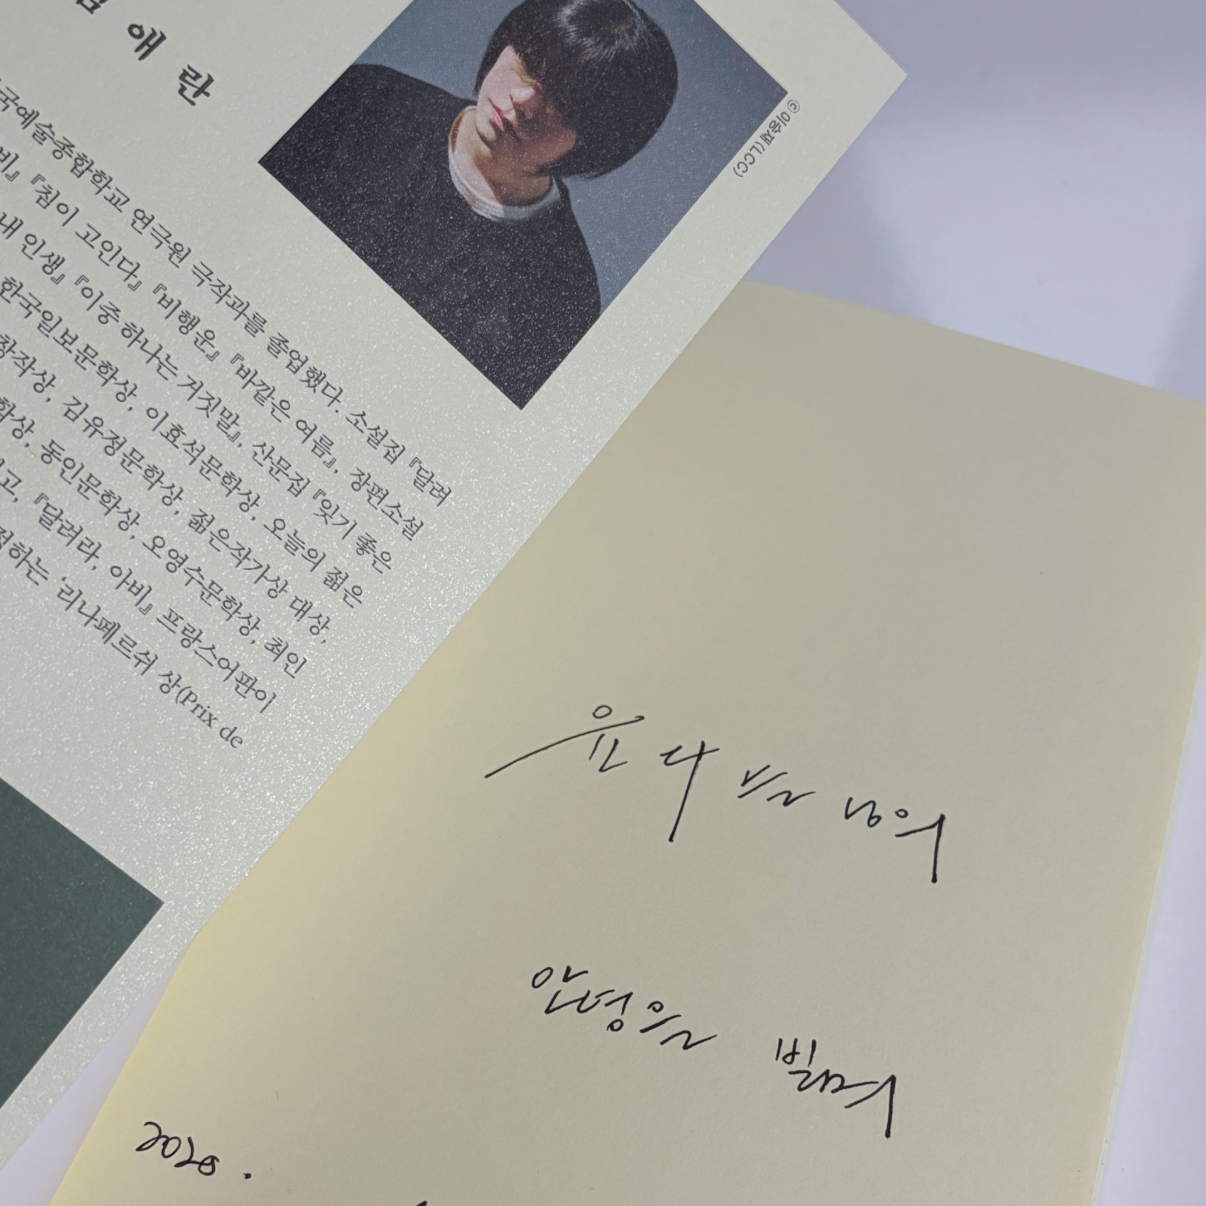 애란
국예술종합학교 연극원 극작과를 졸업했다. 소설집 『달려
비』 『침이 고인다』 『비행운』 『바깥은 여름』, 장편소설
내 인생』 『이중 하나는 거짓말』, 산문집 『잊기 좋은
한국일보문학상, 이효석문학상, 오늘의 젊은
창작상, 김유정문학상, 젊은작가상 대상,
학상, 동인문학상, 오영수문학상, 최인
고, 『달려라, 아비』 프랑스어판이
정하는 '리나페르쉬 상(Prix de
ⓒ이승재(LCC)
님의
안녕을 빌며